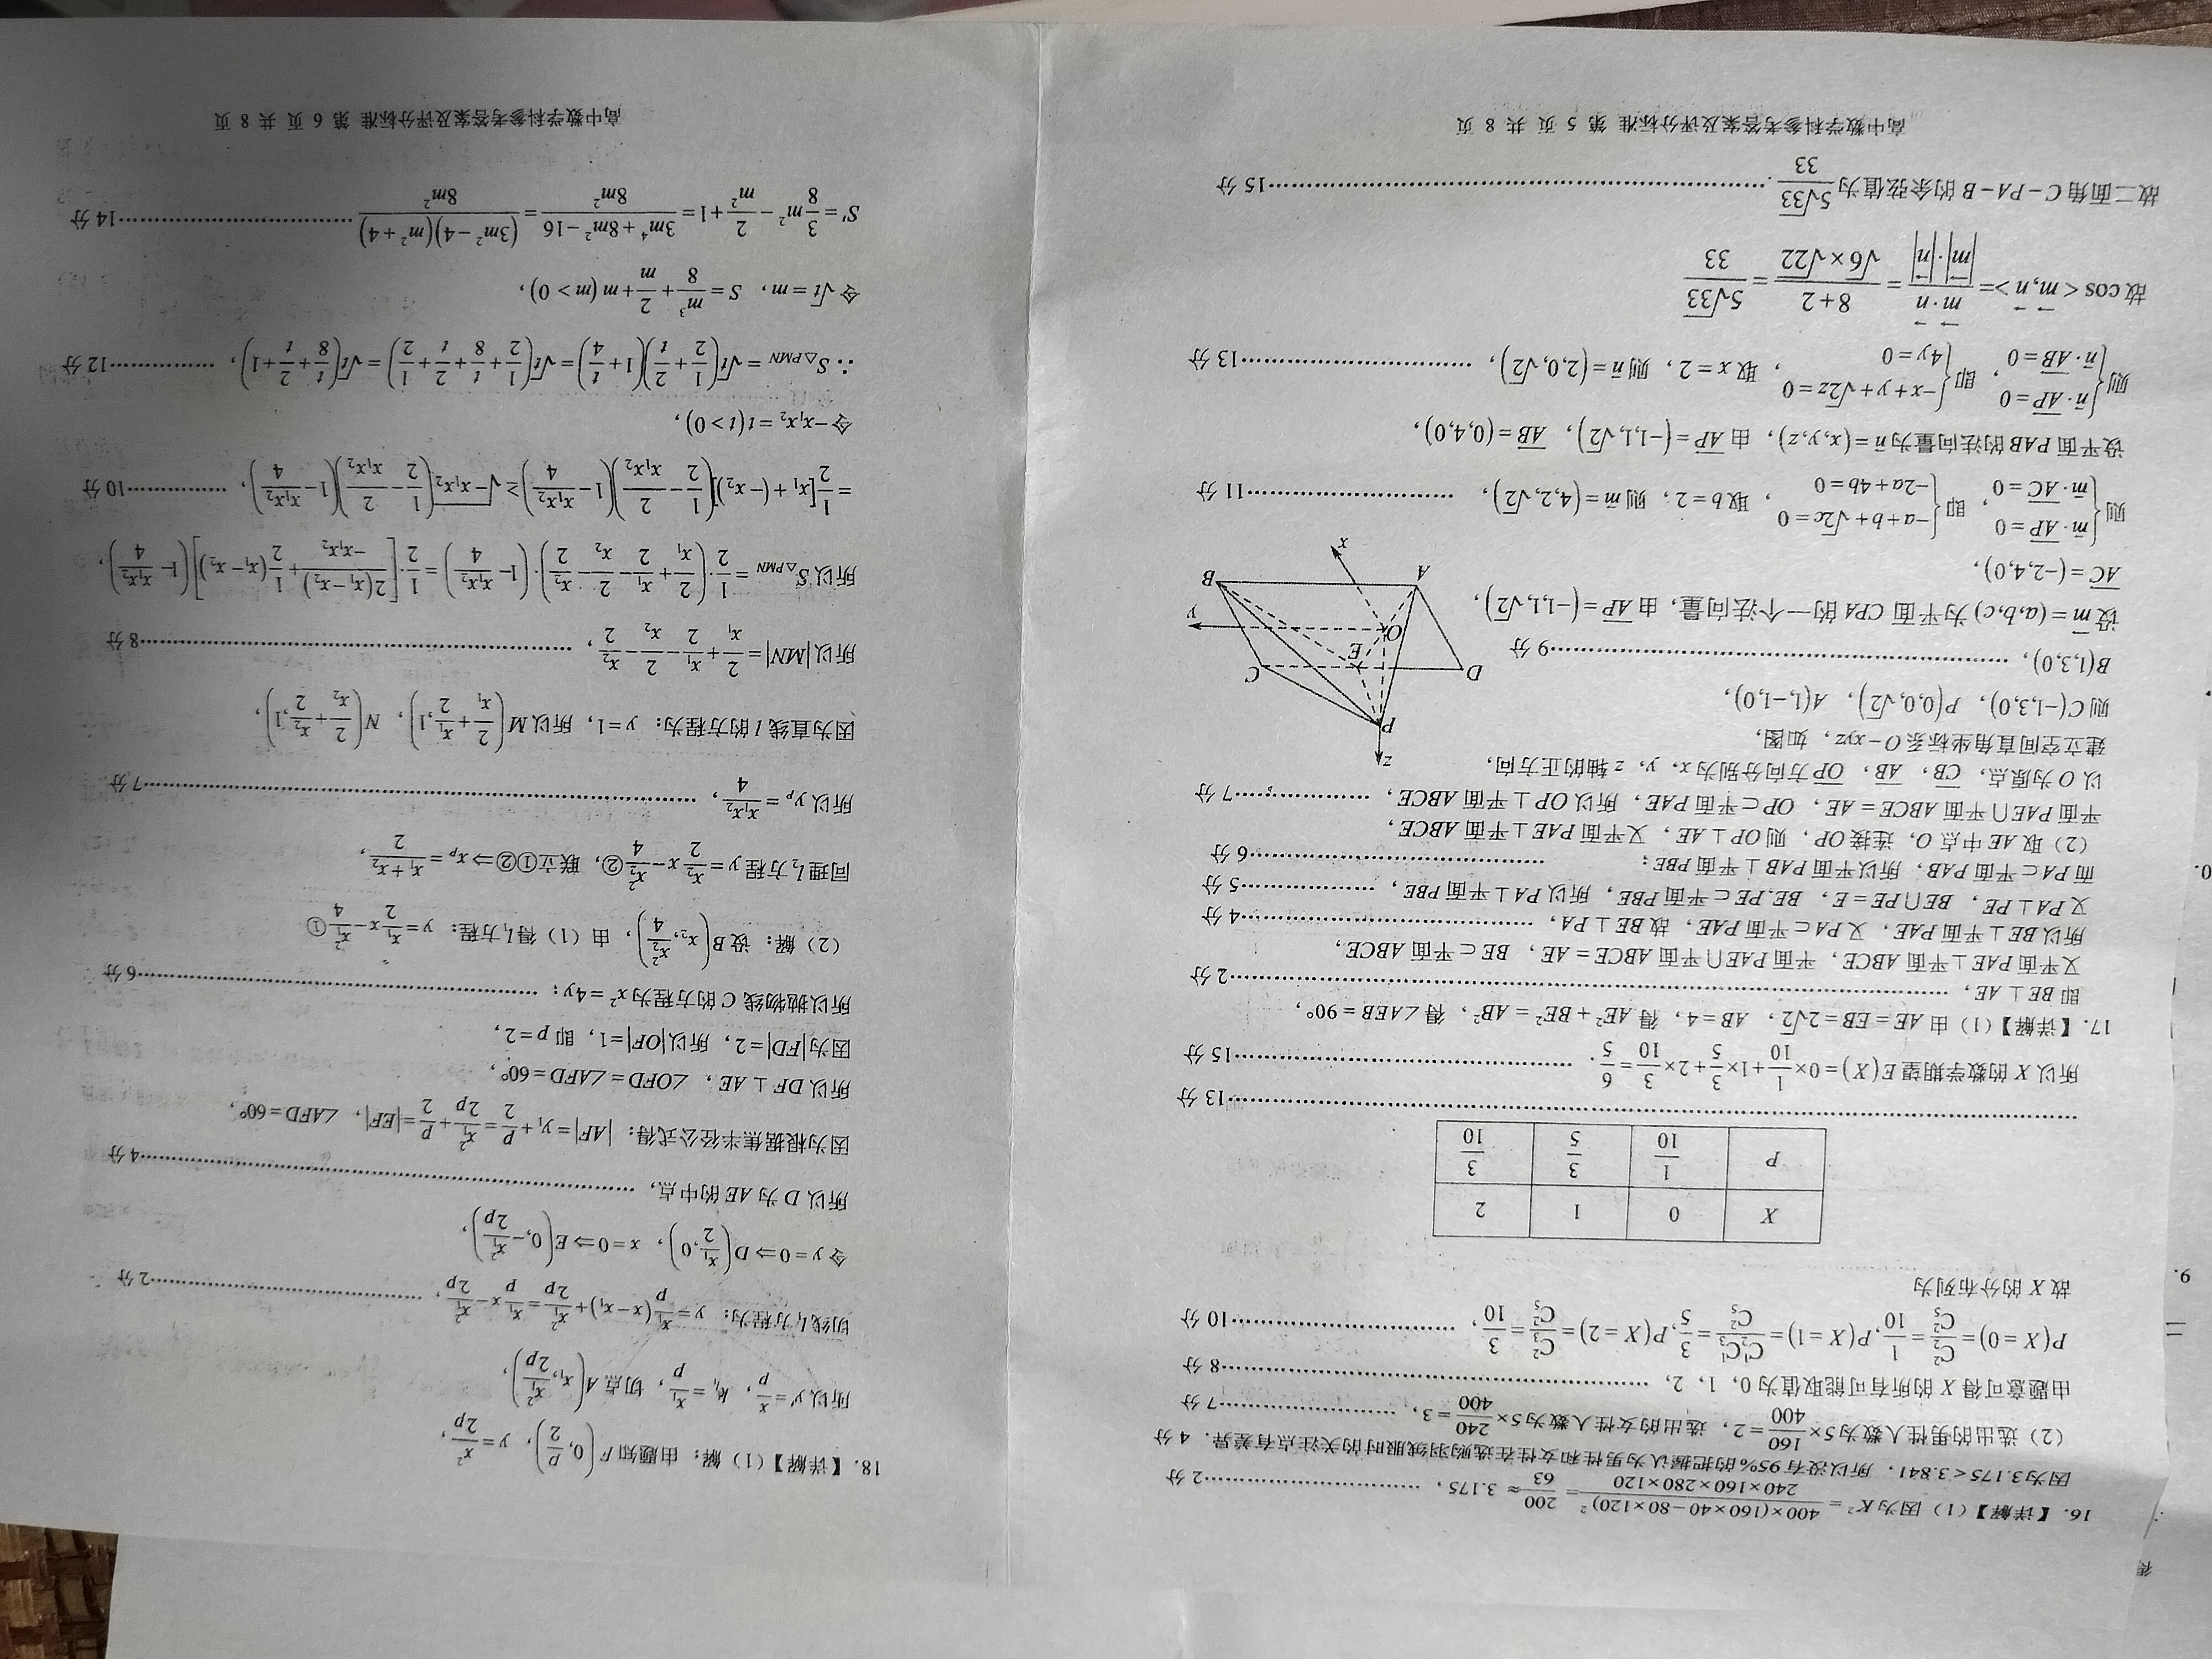 16. 【详解】（1）因为K² = 400×(160×40−80×120)² / 240×160×280×120 = 200/63 ≈ 3.175，……2 分
因为3.175 < 3.841，所以没有95%的把握认为男性和女性在选购羽绒服时的关注点有差异．4 分
（2）选出的男性人数为5×160/400 = 2，选出的女性人数为5×240/400 = 3，……7 分
由题意可得 X 的所有可能取值为 0，1，2，……8 分
P(X = 0) = C₂²/C₅² = 1/10, P(X = 1) = C₂¹C₃¹/C₅² = 3/5, P(X = 2) = C₃²/C₅² = 3/10，……10 分
故 X 的分布列为
X 0 1 2
P 1/10 3/5 3/10
……13 分
所以 X 的数学期望 E(X) = 0×1/10+1×3/5+2×3/10 = 6/5．……15 分
17. 【详解】（1）由 AE = EB = 2√2， AB = 4，得 AE² + BE² = AB²，得∠AEB = 90°，
即 BE ⊥ AE，……2 分
又平面 PAE⊥平面 ABCE，平面 PAE∩平面 ABCE = AE， BE ⊂ 平面 ABCE，
所以 BE⊥平面 PAE，又 PA⊂平面 PAE，故 BE⊥PA，……4 分
又 PA⊥PE， BE∩PE = E， BE, PE ⊂ 平面 PBE，所以 PA⊥平面 PBE，……5 分
而 PA⊂平面 PAB，所以平面 PAB⊥平面 PBE；……6 分
（2）取 AE 中点 O，连接 OP，则 OP⊥AE，又平面 PAE⊥平面 ABCE，
平面 PAE∩平面 ABCE = AE， OP⊂平面 PAE，所以 OP⊥平面 ABCE，……7 分
以 O 为原点，CB，AB，OP 方向分别为 x，y，z 轴的正方向，
建立空间直角坐标系 O−xyz，如图，
则 C(−1,3,0)， P(0,0,√2)， A(1,−1,0)，
B(1,3,0)，……9 分
设 m = (a,b,c) 为平面 CPA 的一个法向量，由 AP = (−1,1,√2)，
AC = (−2,4,0)，
则{m·AP = 0, m·AC = 0，即{−a+b+√2c = 0, −2a+4b = 0，取 b = 2，则 m = (4,2,√2)，……11 分
设平面 PAB 的法向量为 n = (x,y,z)，由 AP = (−1,1,√2)， AB = (0,4,0)，
则{n·AP = 0, n·AB = 0，即{−x+y+√2z = 0, 4y = 0，取 x = 2，则 n = (2,0,√2)，……13 分
故 cos < m,n >= m·n/|m|·|n| = 8+2/√6×√22 = 5√33/33
故二面角 C−PA−B 的余弦值为 5√33/33．……15 分
z
P
D
E
C
O
y
A
B
x
高中数学科参考答案及评分标准 第 5 页 共 8 页
18. 【详解】（1）解：由题知 F(0, p/2)， y = x²/2p，
所以 y′ = x/p， kₗ₁ = x₁/p，切点 A(x₁, x₁²/2p)，
切线 l₁ 方程为：y = x₁/p(x−x₁)+x₁²/2p = x₁/p x − x₁²/2p，……2 分
令 y = 0 ⇒ D(x₁/2, 0)， x = 0 ⇒ E(0, −x₁²/2p)，
所以 D 为 AE 的中点，……4 分
因为根据焦半径公式得：|AF| = y₁ + p/2 = x₁²/2p + p/2 = |EF|， ∠AFD = 60°，
所以 DF⊥AE， ∠OFD = ∠AFD = 60°，
因为|FD| = 2，所以|OF| = 1，即 p = 2，
所以抛物线 C 的方程为 x² = 4y；……6 分
（2）解：设 B(x₂, x₂²/4)，由（1）得 l₁ 方程：y = x₁/2 x − x₁²/4①
同理 l₂ 方程 y = x₂/2 x − x₂²/4②，联立①②⇒ xₚ = x₁+x₂/2，
所以 yₚ = x₁x₂/4，……7 分
因为直线 l 的方程为：y = 1，所以 M(2/x₁ + x₁/2, 1)， N(2/x₂ + x₂/2, 1)，
所以|MN| = 2/x₁ + x₁/2 − 2/x₂ − x₂/2，……8 分
所以 S△PMN = 1/2·(2/x₁ + x₁/2 − 2/x₂ − x₂/2)·(1 − x₁x₂/4) = 1/2·[2(x₁−x₂)/−x₁x₂ + 1/2(x₁−x₂)](1 − x₁x₂/4)，
= 1/2[x₁+(−x₂)](1/2 − 2/x₁x₂)(1 − x₁x₂/4) ≥ √−x₁x₂(1/2 − 2/x₁x₂)(1 − x₁x₂/4)，……10 分
令 −x₁x₂ = t(t > 0)，
∴ S△PMN = √t(1/2 + 2/t)(1 + t/4) = √t(1/2 + t/8 + 2/t + 1/2) = √t(t/8 + 2/t + 1)，……12 分
令 √t = m， S = m³/8 + 2/m + m(m > 0)，
S′ = 3/8 m² − 2/m² + 1 = 3m⁴+8m²−16/8m² = (3m²−4)(m²+4)/8m²……14 分
高中数学科参考答案及评分标准 第 6 页 共 8 页